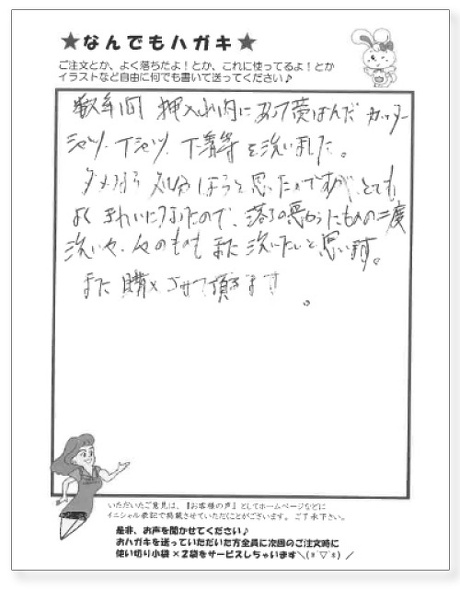 ★なんでもハガキ★
ご注文とか、よく落ちたよ!とか、これに使ってるよ!とか
イラストなど自由に何でも書いて送ってください♪
数年間 押入れ内にあって黄ばんだ カッター
シャツ、Tシャツ、下着等を洗いました。
ダメなら処分しようと思ったのですが、とても
よく きれいになったので、落ちの悪かったものの二度
洗いや、他のものも また 洗いたいと思います。
また 購入させて頂きます。
いただいたご意見は、『お客様の声』としてホームページなどに
イニシャル表記で掲載させていただくことがございます。ご了承下さい。
是非、お声を聞かせてください♪
おハガキを送っていただいた方全員に次回のご注文時に
使い切り小袋×2袋をサービスしちゃいます\(*´▽`*)/